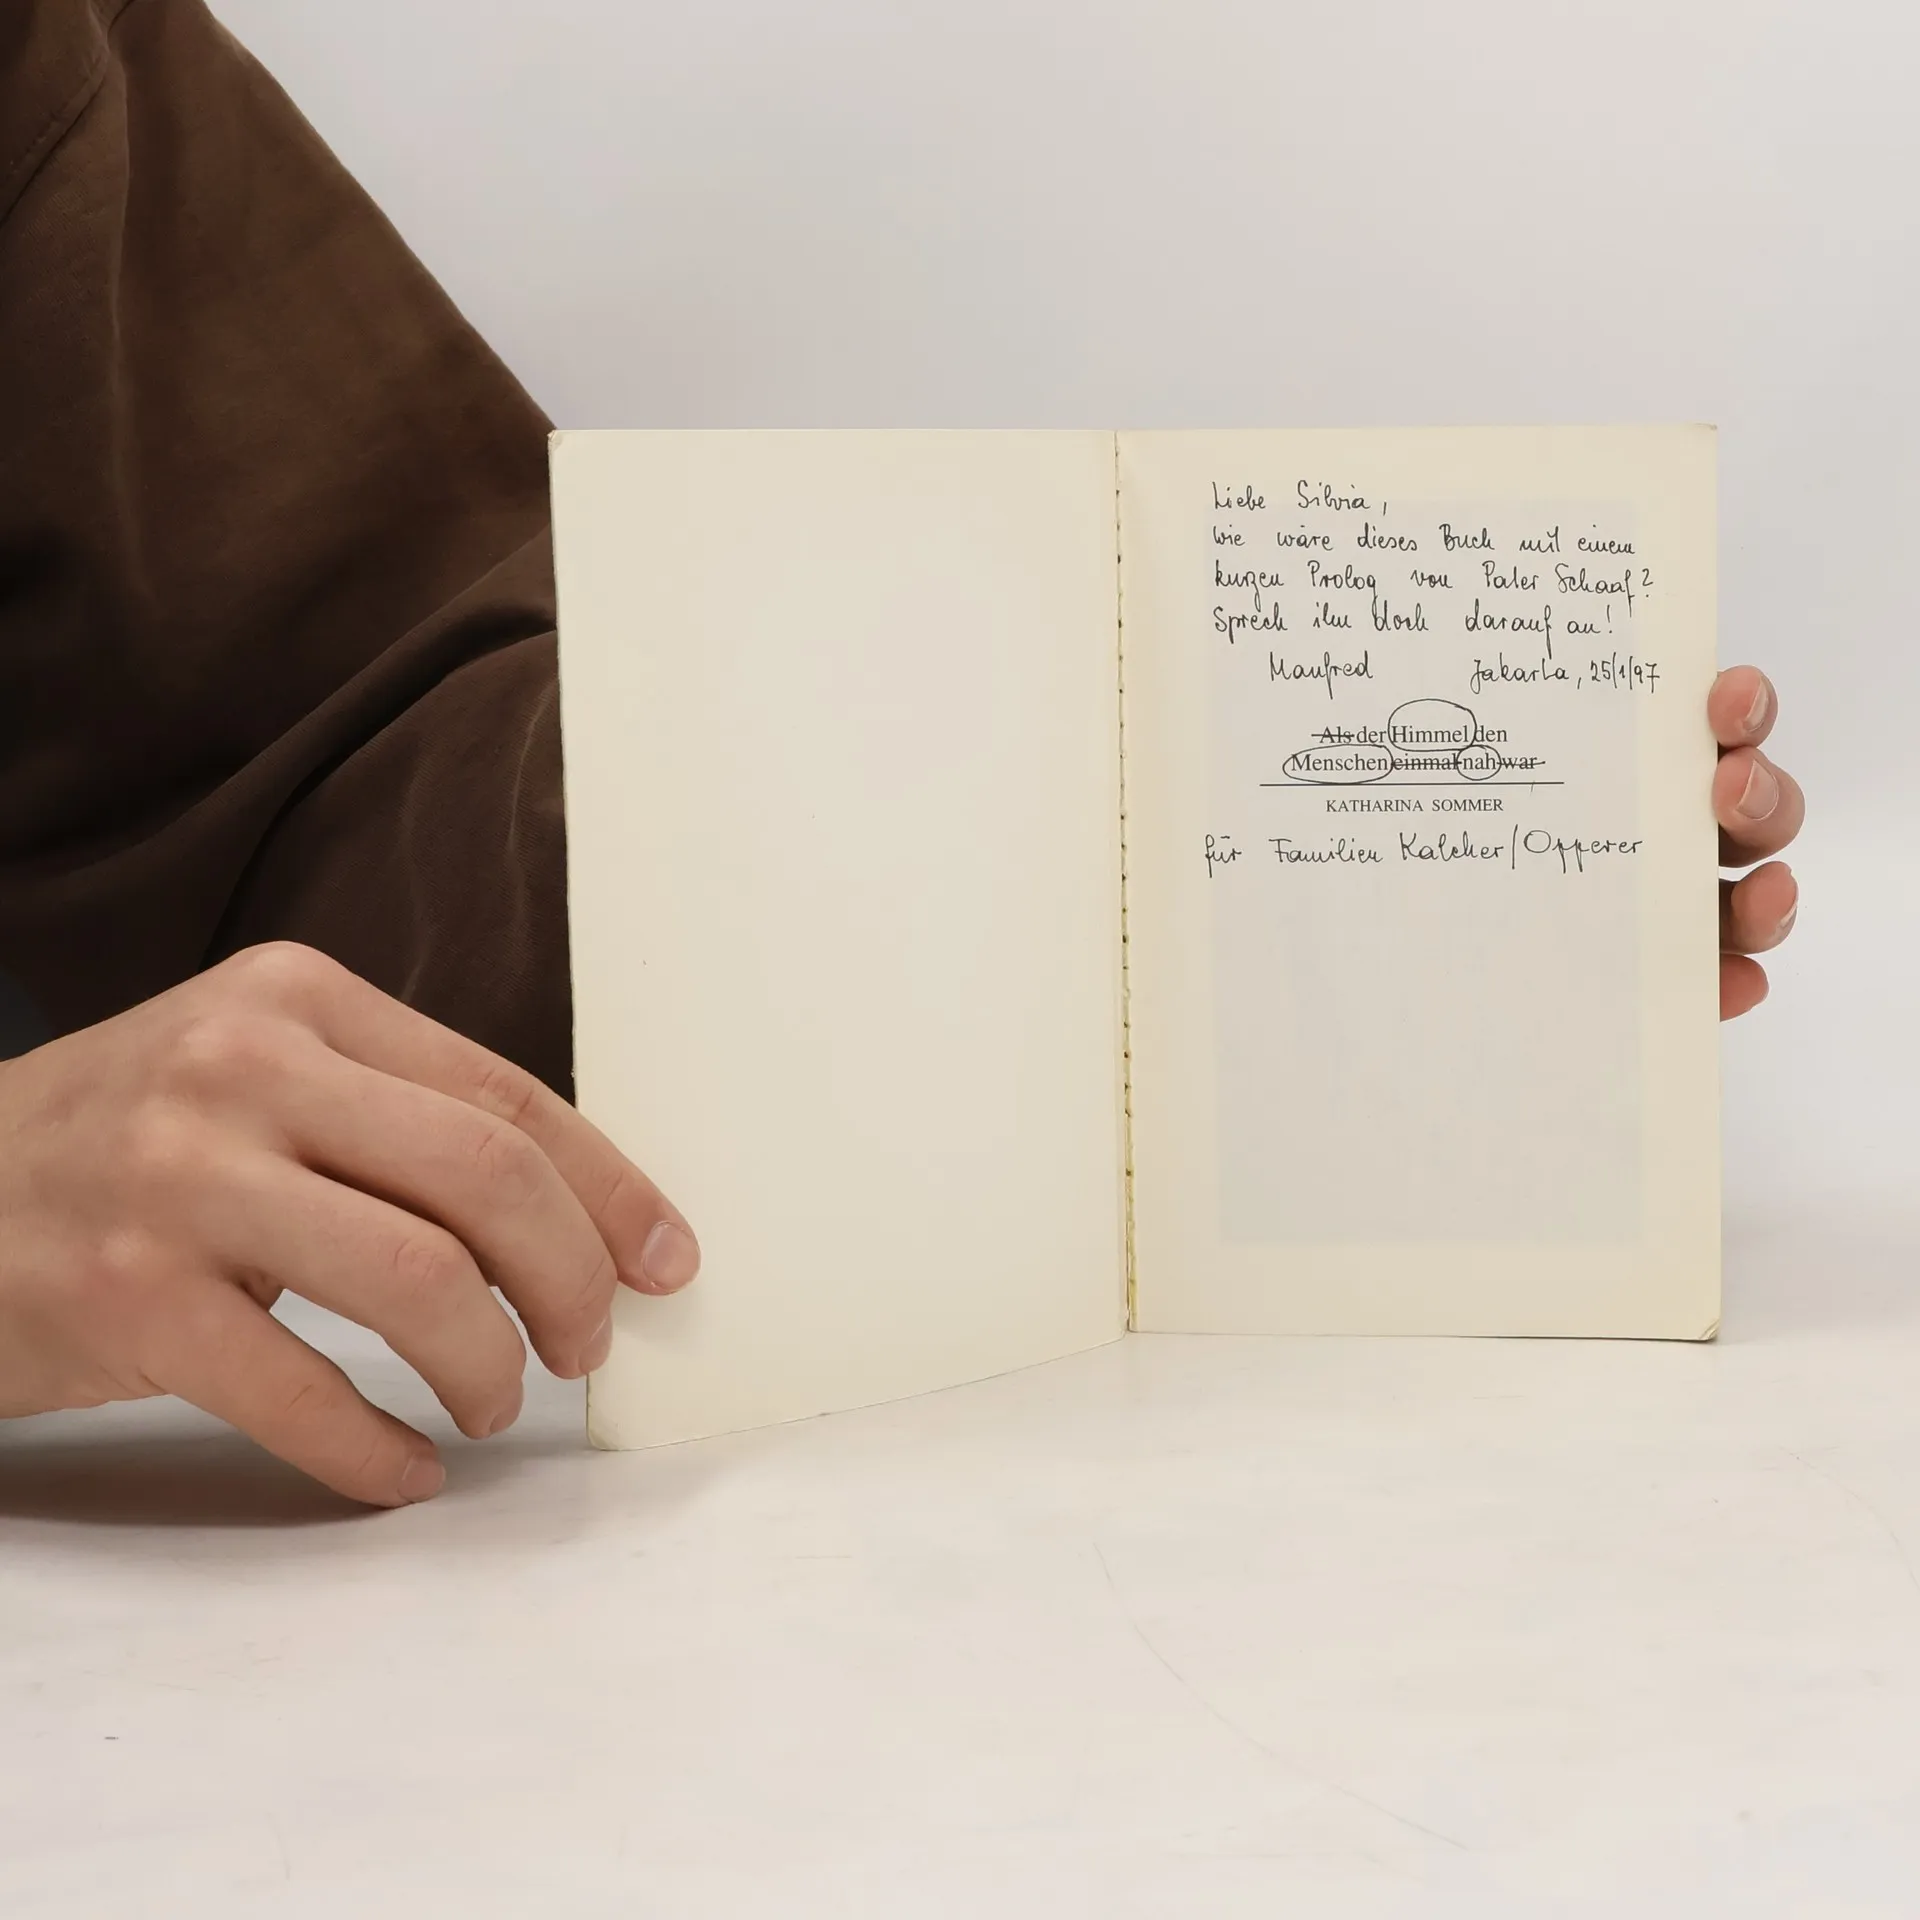 Liebe Silvia,
wie wäre dieses Buch mit einem
kurzen Prolog von Pater Schaaf?
Sprech ihn doch darauf an!
Manfred Jakarta, 25/1/97
Als der Himmel den
Menschen einmal nah war
KATHARINA SOMMER
für Familien Kalcher/Opperer